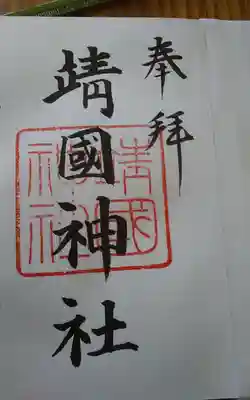 奉拝
靖國神社
靖國神社